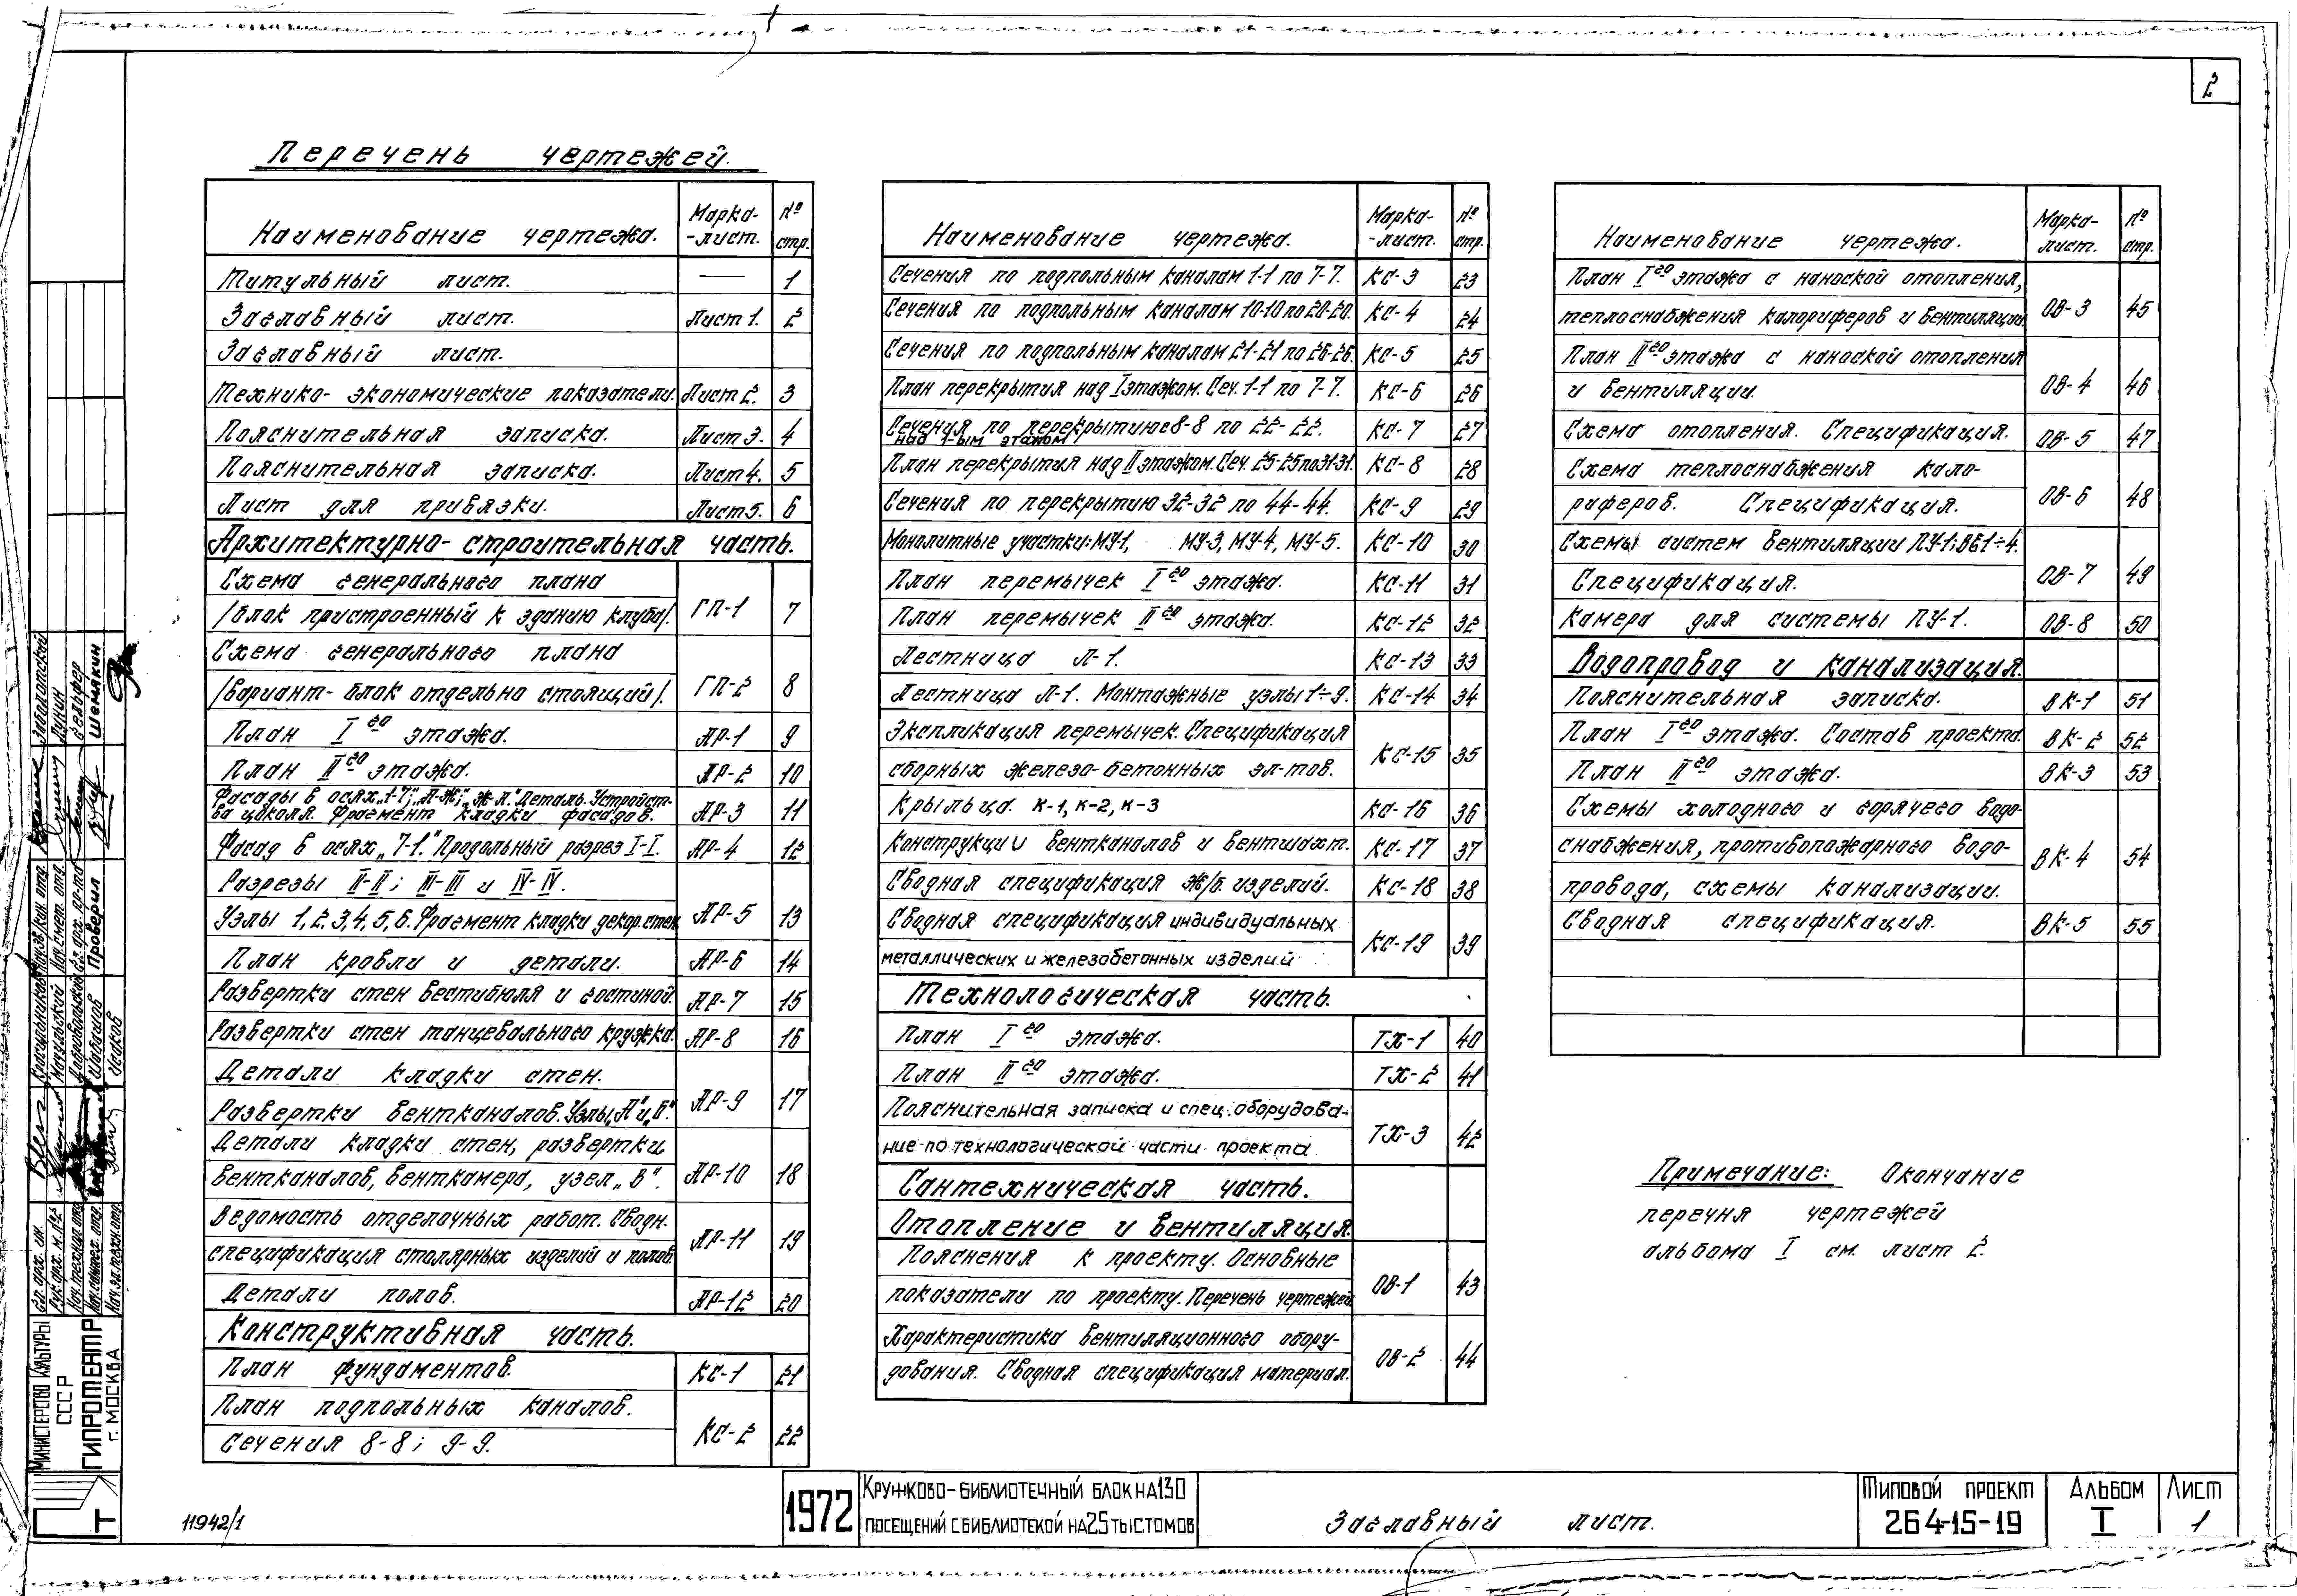 2
Перечень чертежей.
Наименование чертежа.
Марка-
-лист.
№
стр.
Титульный лист. — 1
Заглавный лист. Лист 1. 2
Заглавный лист.
Технико-экономические показатели. Лист 2. 3
Пояснительная записка. Лист 3. 4
Пояснительная записка. Лист 4. 5
Лист для привязки. Лист 5. 6
Архитектурно-строительная часть.
Схема генерального плана
/блок пристроенный к зданию клуба/. ГП-1 7
Схема генерального плана
/вариант-блок отдельно стоящий/. ГП-2 8
План I го этажа. АР-1 9
План II го этажа. АР-2 10
Фасады в осях „1-7”; „А-Ж”; „Ж-А.” Деталь. Устройст-
ва цоколя. Фрагмент кладки фасадов. АР-3 11
Фасад в осях „7-1.” Продольный разрез I-I. АР-4 12
Разрезы II-II; III-III и IV-IV.
Узлы 1, 2, 3, 4, 5, 6. Фрагмент кладки декор. стен АР-5 13
План кровли и детали. АР-6 14
Развертки стен вестибюля и гостиной. АР-7 15
Развертки стен танцевального кружка. АР-8 16
Детали кладки стен.
Развертки вентканалов. Узлы „А” и „Б”. АР-9 17
Детали кладки стен, развертки
вентканалов, венткамера, узел „В”. АР-10 18
Ведомость отделочных работ. Сводн.
спецификация столярных изделий и полов. АР-11 19
Детали полов. АР-12 20
Конструктивная часть.
План фундаментов. КС-1 21
План подпольных каналов.
Сечения 8-8; 9-9. КС-2 22
Наименование чертежа.
Марка-
-лист.
№
стр.
Сечения по подпольным каналам 1-1 по 7-7. КС-3 23
Сечения по подпольным каналам 10-10 по 20-20. КС-4 24
Сечения по подпольным каналам 21-21 по 26-26. КС-5 25
План перекрытия над I этажом. Сеч. 1-1 по 7-7. КС-6 26
Сечения по перекрытию с 8-8 по 22-22. КС-7 27
над 1-ым этажом
План перекрытия над II этажом. Сеч. 25-25 по 31-31. КС-8 28
Сечения по перекрытию 32-32 по 44-44. КС-9 29
Монолитные участки: МУ-1, МУ-3, МУ-4, МУ-5. КС-10 30
План перемычек I го этажа. КС-11 31
План перемычек II го этажа. КС-12 32
Лестница Л-1. КС-13 33
Лестница Л-1. Монтажные узлы 1÷9. КС-14 34
Экспликация перемычек. Спецификация
сборных железо-бетонных эл-тов. КС-15 35
Крыльца. К-1, К-2, К-3 КС-16 36
Конструкции вентканалов и вентшахт. КС-17 37
Сводная спецификация ж/б. изделий. КС-18 38
Сводная спецификация индивидуальных
металлических и железобетонных изделий КС-19 39
Технологическая часть.
План I го этажа. ТХ-1 40
План II го этажа. ТХ-2 41
Пояснительная записка и спец. оборудова-
ние по технологической части проекта ТХ-3 42
Сантехническая часть.
Отопление и вентиляция.
Пояснения к проекту. Основные
показатели по проекту. Перечень чертежей ОВ-1 43
Характеристика вентиляционного обору-
дования. Сводная спецификация материал. ОВ-2 44
Наименование чертежа.
Марка-
лист.
№
стр.
План I го этажа с наноской отопления,
теплоснабжения калориферов и вентиляции. ОВ-3 45
План II го этажа с наноской отопления
и вентиляции. ОВ-4 46
Схема отопления. Спецификация. ОВ-5 47
Схема теплоснабжения кало-
риферов. Спецификация. ОВ-6 48
Схемы систем вентиляции ПУ-1; ВБ1÷4.
Спецификация. ОВ-7 49
Камера для системы ПУ-1. ОВ-8 50
Водопровод и канализация.
Пояснительная записка. ВК-1 51
План I го этажа. Состав проекта. ВК-2 52
План II го этажа. ВК-3 53
Схемы холодного и горячего водо-
снабжения, противопожарного водо-
провода, схемы канализации. ВК-4 54
Сводная спецификация. ВК-5 55
Примечание: Окончание
перечня чертежей
альбома I см. лист 2.
Министерство Культуры
СССР
ГИПРОТЕАТР
г. Москва
Гл. арх. ин.
Проверил
Шабашов
Усаков
Заболотский
Лунин
Гельфер
Шемякин
11942/1
1972
Кружково-библиотечный блок на 130
посещений с библиотекой на 25 тыс томов
Заглавный лист.
Типовой проект
264-15-19
Альбом
I
Лист
1